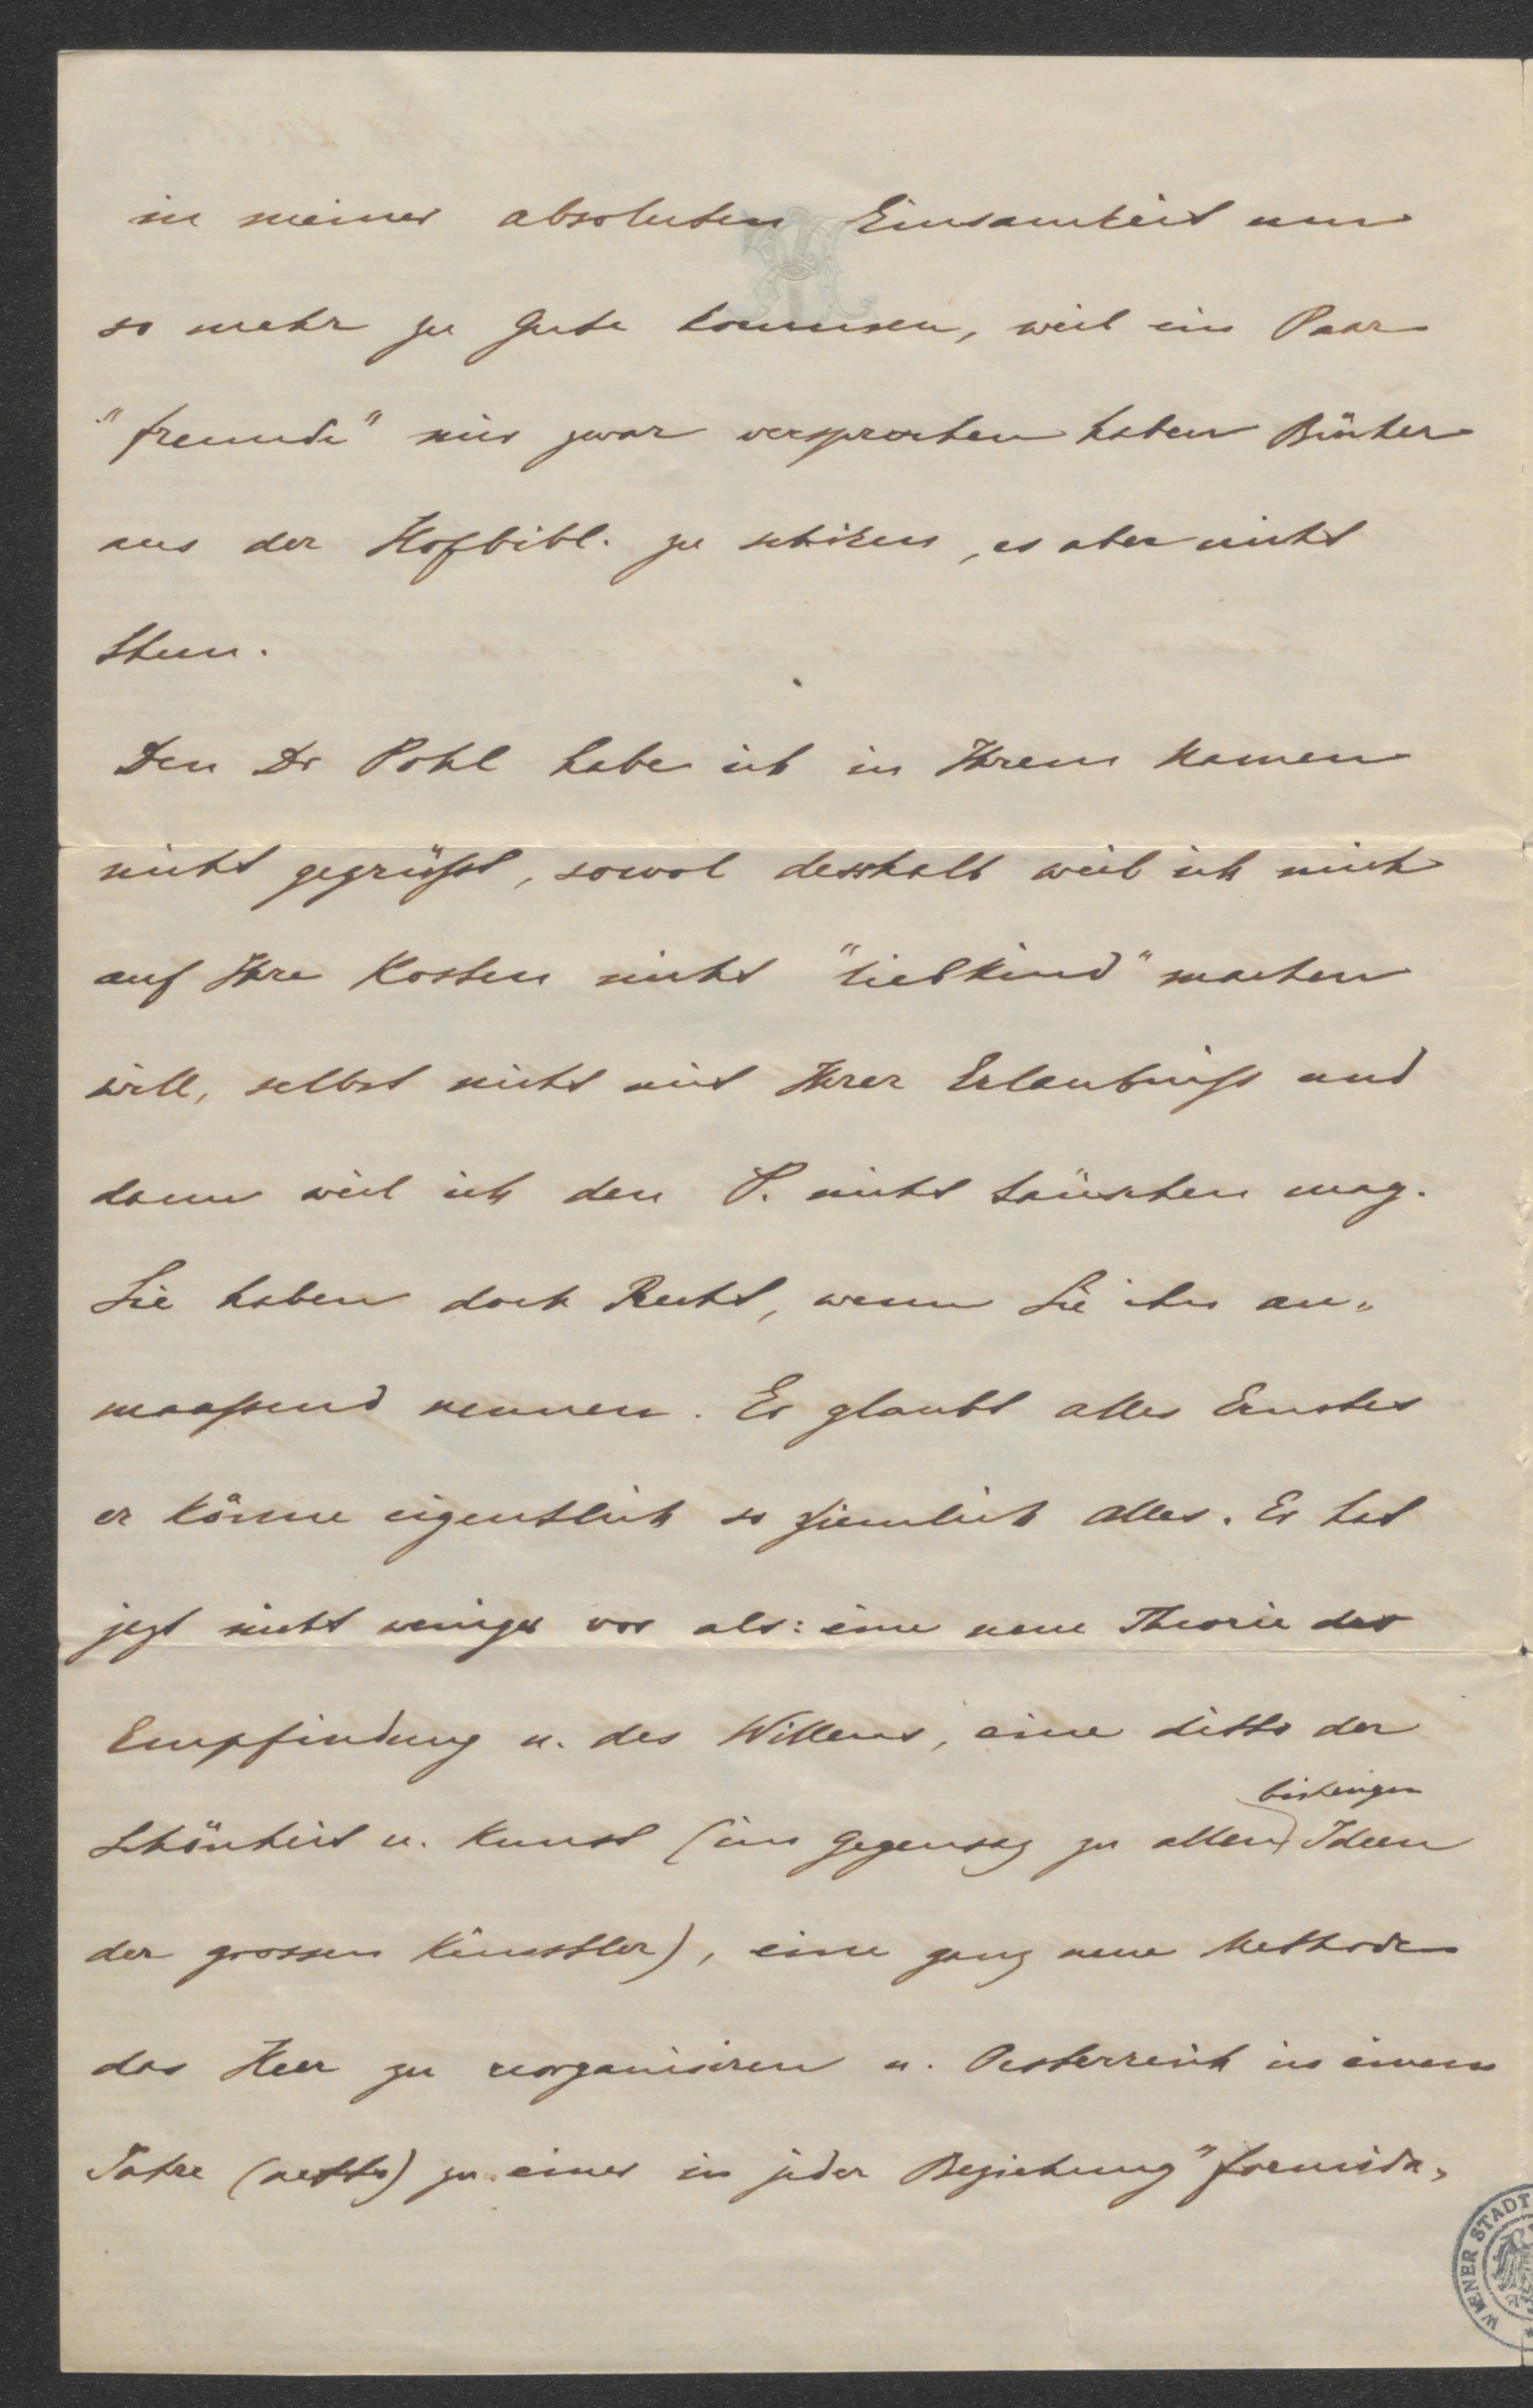 in meiner absoluten Einsamkeit um
so mehr zu Gute kommen, weil ein Paar
"Freunde" mir zwar versprochen haben Bücher
aus der Hofbibl. zu schiken, es aber nicht
thun.
Den Dr Pohl habe ich in Ihrem Namen
nicht gegrüßt, sowol desshalb weil ich mich
auf Ihre Kosten nicht "liebkind" machen
will, selbst nicht mit Ihrer Erlaubniß und
dann weil ich den P. nicht täuschen mag.
Sie haben doch Recht, wenn Sie ihn an„
maaßend nennen. Er glaubt alles Ernstes
er könne eigentlich so ziemlich alles. Er hat
jezt nicht weniger vor als: eine neue Theorie der
Empfindung u. des Willens, eine ditto der
bisherigen
Schönheit u. Kunst (im Gegensaz zu allen Ideen
der grossen Künstler), eine ganz neue Methode
das Heer zu reorganisiren u. Oesterreich in einem
Jahre (netto) zu einer in jeder Beziehung "formida„
WIENER STADT